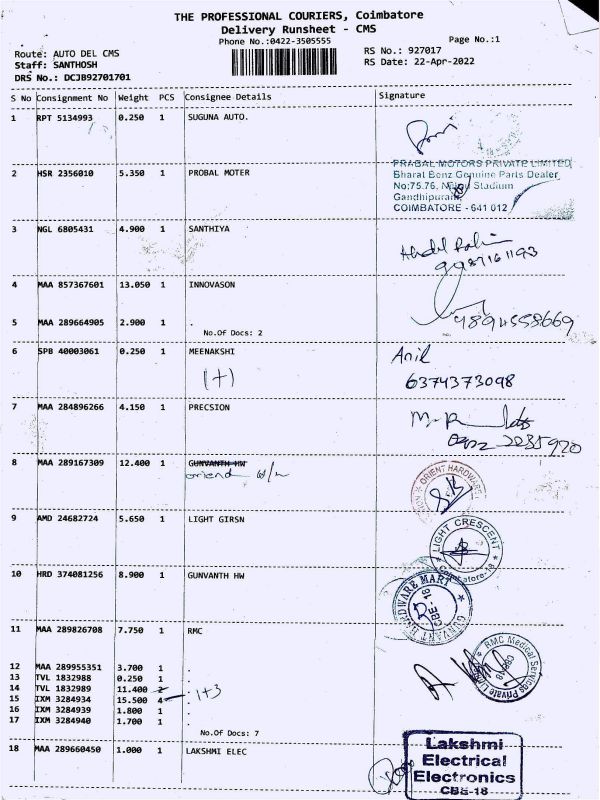 THE PROFESSIONAL COURIERS, Coimbatore
Delivery Runsheet - CMS
Phone No.:0422-3505555
Page No.:1
Route: AUTO DEL CMS
RS No.: 927017
Staff: SANTHOSH
RS Date: 22-Apr-2022
DRS No.: DCJB92701701
S No Consignment No Weight PCS Consignee Details Signature
1 RPT 5134993 0.250 1 SUGUNA AUTO.
2 HSR 2356010 5.350 1 PROBAL MOTER
PRABAL MOTORS PRIVATE LIMITED
Bharat Benz Genuine Parts Dealer
No:75.76, Stadium
Gandhipuram,
COIMBATORE - 641 012
3 NGL 6805431 4.900 1 SANTHIYA
9987161193
4 MAA 857367601 13.050 1 INNOVASON
5 MAA 289664905 2.900 1 .
9894558669
No.Of Docs: 2
6 SPB 40003061 0.250 1 MEENAKSHI
Anil
(+)
6374373098
7 MAA 284896266 4.150 1 PRECSION
8 MAA 289167309 12.400 1 GUNVANTH HW
oriend
ORIENT HARDWARE
9 AMD 24682724 5.650 1 LIGHT GIRSN
LIGHT CRESCENT
Coimbatore-18
10 HRD 374081256 8.900 1 GUNVANTH HW
GUNVANT HARDWARE MART
CBE-18
11 MAA 289826708 7.750 1 RMC
RMC Medical Services Private Limited
CBE-18
12 MAA 289955351 3.700 1 .
13 TVL 1832988 0.250 1 .
14 TVL 1832989 11.400 2 .
15 IXM 3284934 15.500 4 .
1+3
16 IXM 3284939 1.800 1 .
17 IXM 3284940 1.700 1 .
No.Of Docs: 7
18 MAA 289660450 1.000 1 LAKSHMI ELEC
Lakshmi
Electrical
Electronics
CBE-18